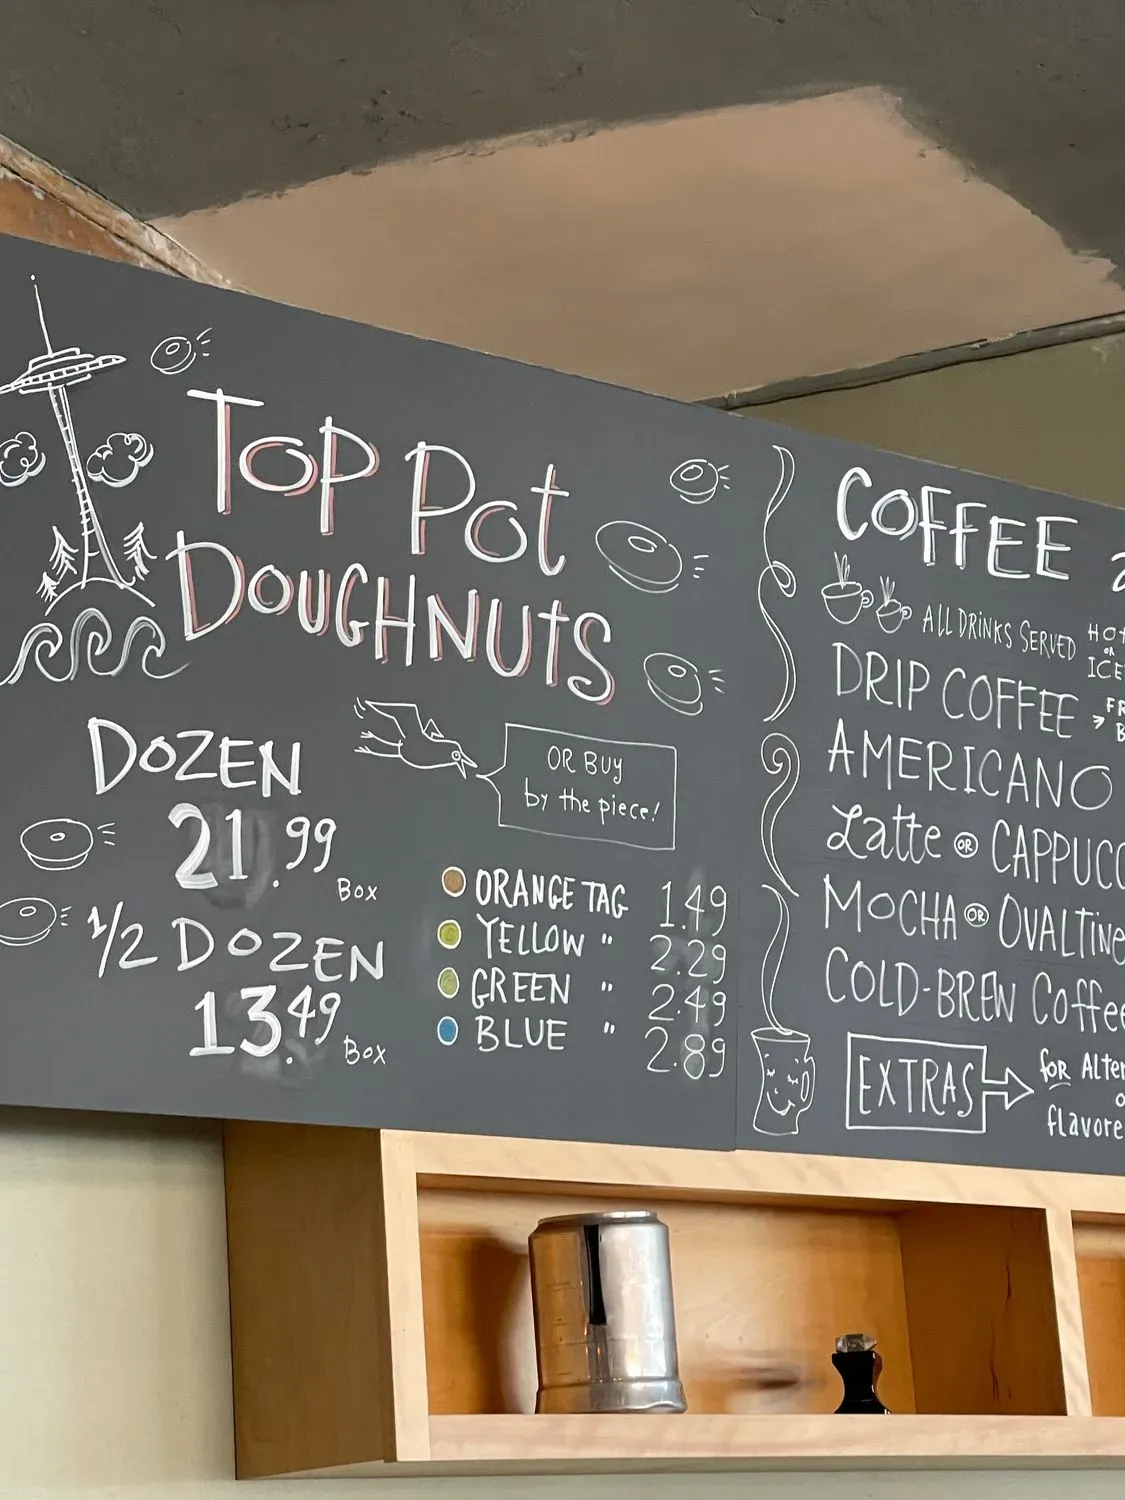 TOP POT
DOUGHNUTS
DOZEN
21.99
Box
1/2 DOZEN
13.49
Box
OR BUY
by the piece!
ORANGE TAG 1.49
YELLOW " 2.29
GREEN " 2.49
BLUE " 2.89
COFFEE
ALL DRINKS SERVED
OR
DRIP COFFEE
AMERICANO
Latte OR CAPPUCC
MOCHA OR OVALTINE
COLD-BREW Coffee
EXTRAS
for Alter
flavore